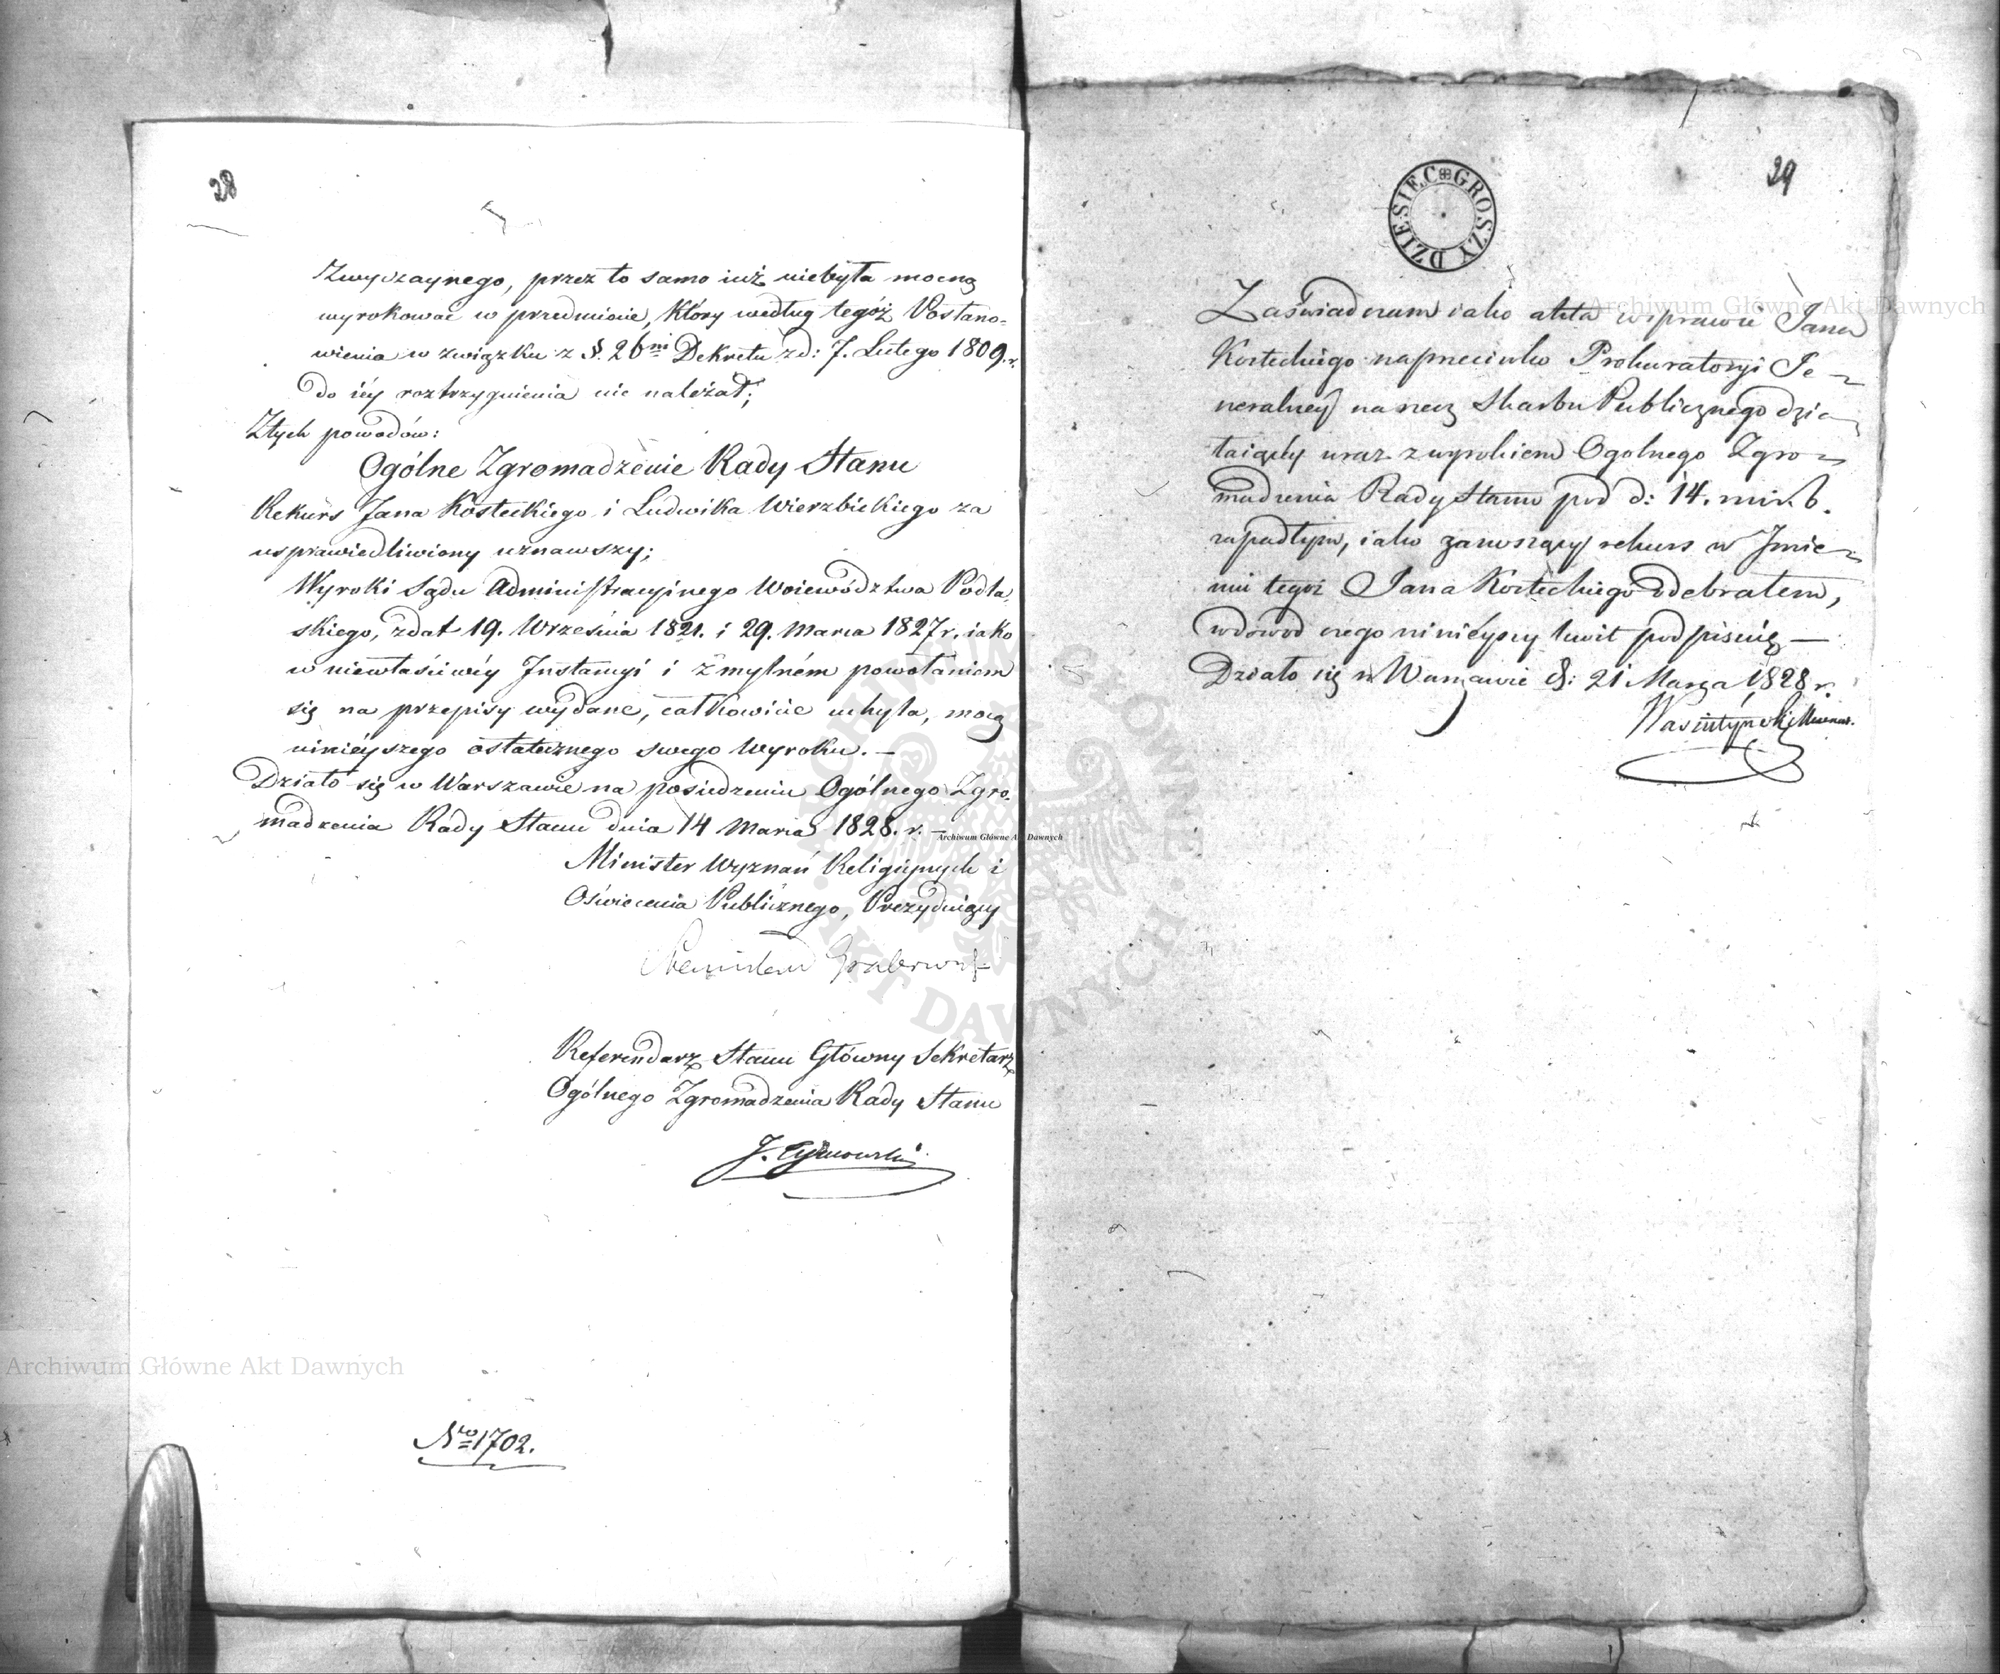 28
Zwyczaynego, przez to samo iuż niebyła mocną
wyrokować w przedmiocie, który według tegóż Postano-
wienia w związku z §. 26ni Dekretu z d: 7. Lutego 1809. r.
do iéy roztrzygnienia nie należał;
Z tych powodów:
Ogólne Zgromadzenie Rady Stanu
Rekurs Jana Kosteckiego i Ludwika Wierzbickiego za
usprawiedliwiony uznawszy;
Wyroki Sądu Administracyinego Woiewództwa Podla-
skiego, z dat 19. Września 1821. i 29. Marca 1827 r. iako
w niewłaściwéy Instancyi i z mylném powołaniem
się na przepisy wydane, całkowicie uchyla, mocą
ninieyszego ostatecznego swego Wyroku. —
Działo się w Warszawie na posiedzeniu Ogólnego Zgro-
madzenia Rady Stanu dnia 14 Marca 1828. r. —
Minister Wyznań Religiynych i
Oświecenia Publicznego, Prezyduiący
Stanisław Grabowski
Referendarz Stanu Główny Sekretarz
Ogólnego Zgromadzenia Rady Stanu
J. Tymowski
Nro 1702.
29
DZIESIĘC GROSZY
Zaświadczam iako akta w sprawie Jana
Kosteckiego naprzeciwko Prokuratoryi Je-
neralney na rzecz Skarbu Publicznego dzia-
łaiącey wraz z wyrokiem Ogolnego Zgro-
madzenia Rady Stanu pod d: 14. m. i r. b.
zapadłym, iako zanoszący rekurs w Jmie-
niu tegoż Jana Kosteckiego odebrałem,
w dowod czego ninieyszy kwit podpisuię —
Działo się w Warszawie d: 21 Marca 1828 r.
Wasiutyński
Archiwum Główne Akt Dawnych
Archiwum Główne Akt Dawnych
Archiwum Główne Akt Dawnych
ARCHIWUM GŁÓWNE · AKT DAWNYCH ·